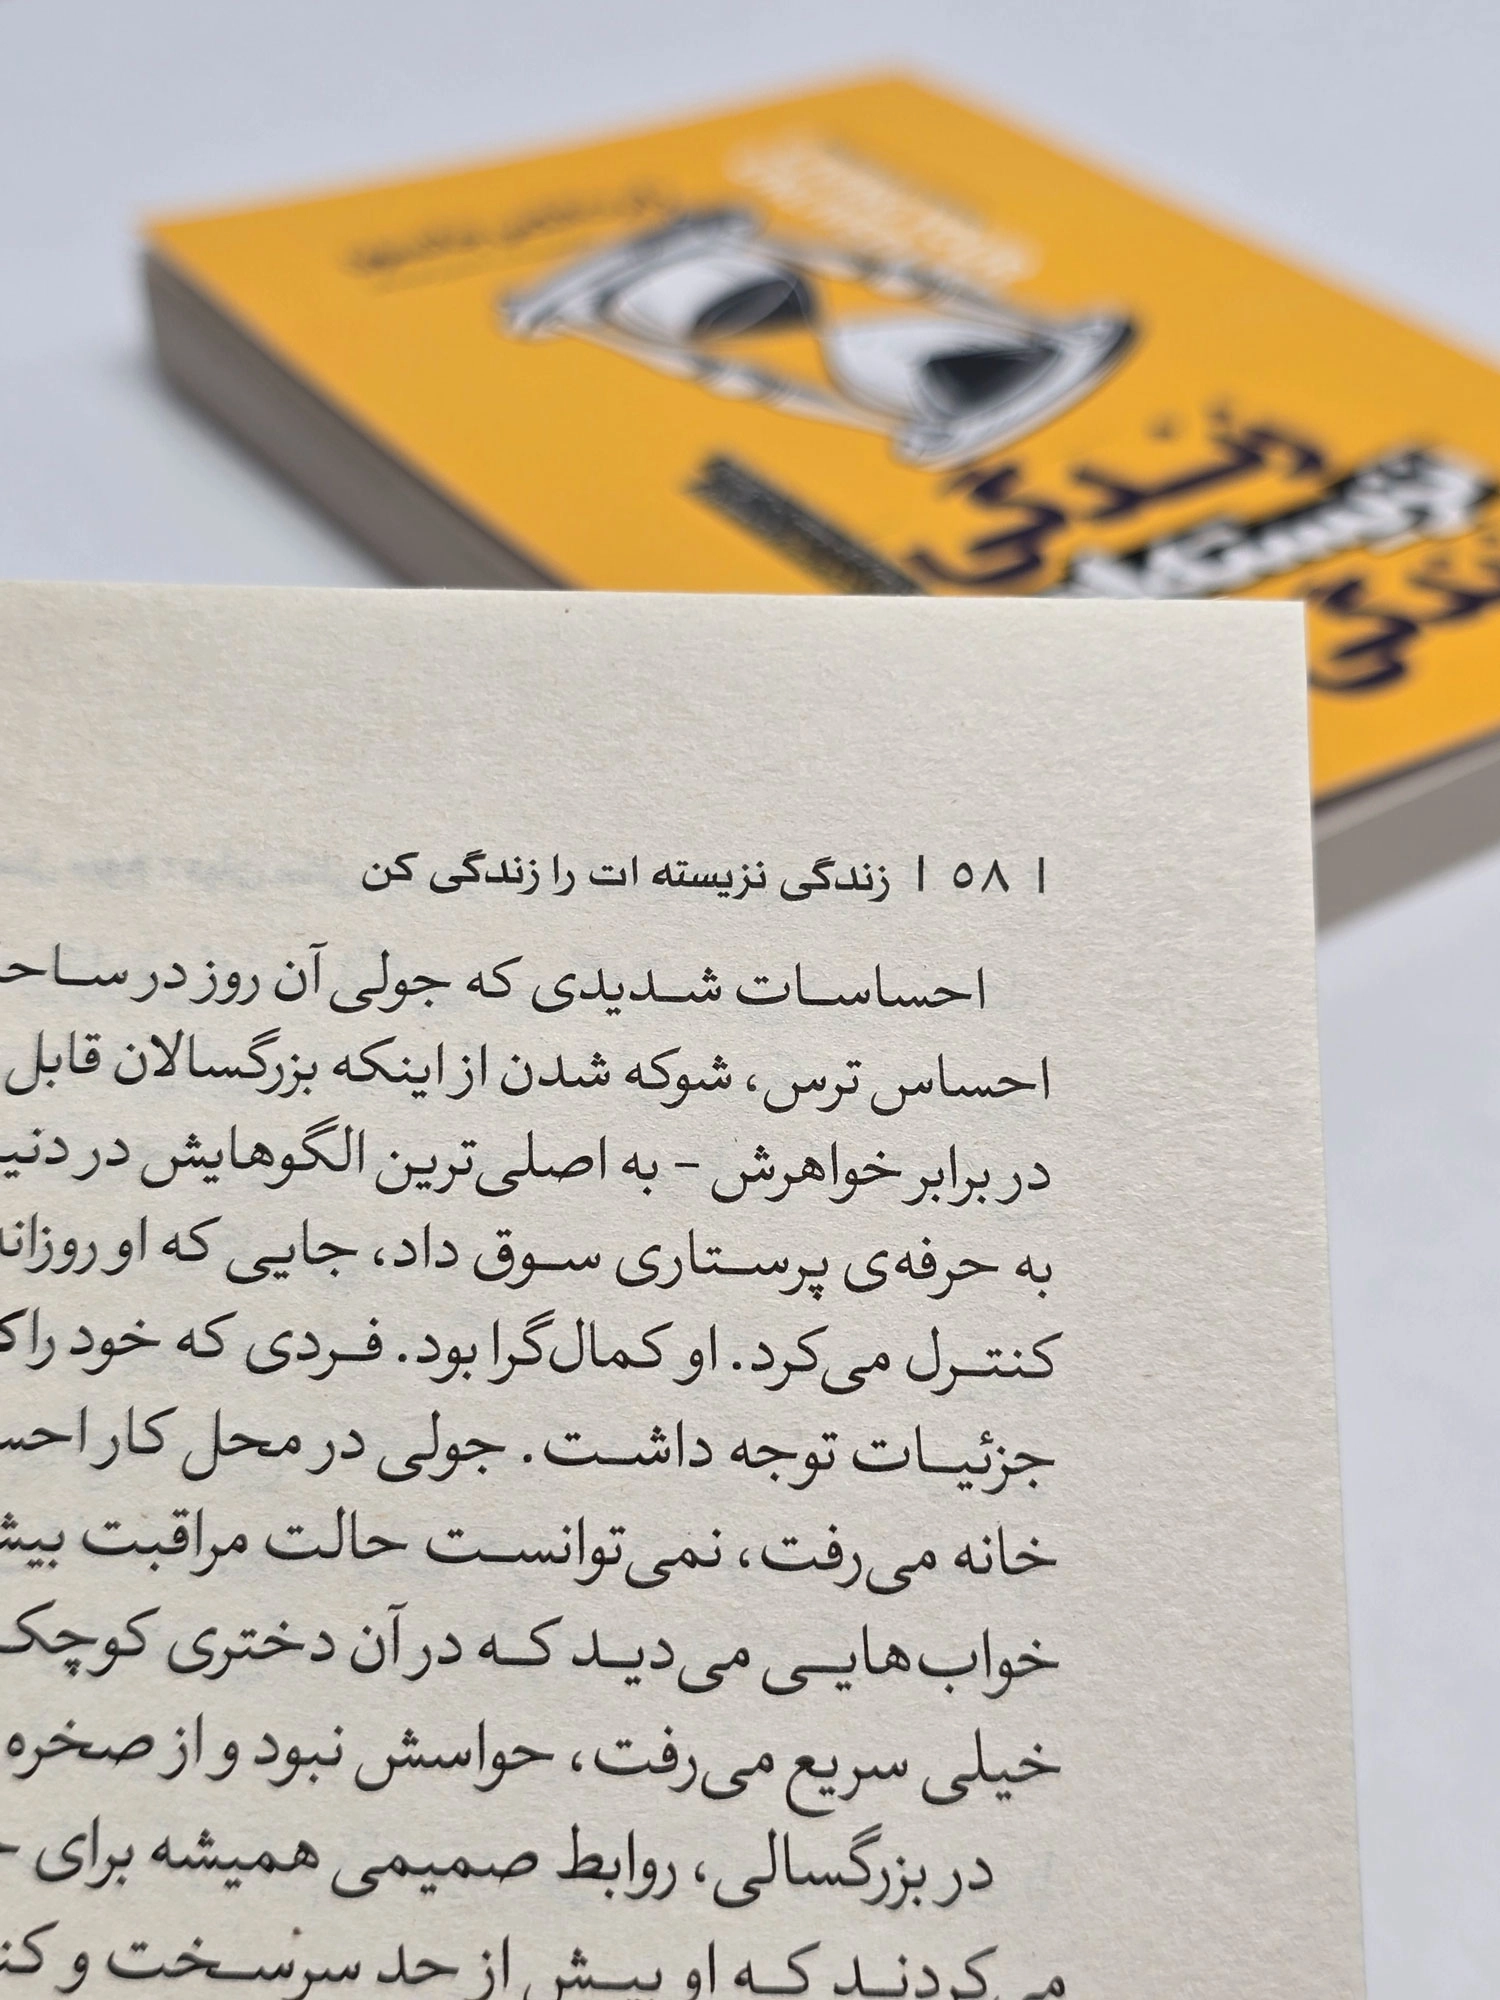 زندگی
نزیسته‌ات
زندگی
| ۵۸ | زندگی نزیسته ات را زندگی کن
احساسات شدیدی که جولی آن روز در
احساس ترس، شوکه شدن از اینکه بزرگسالان قابل
در برابر خواهرش - به اصلی‌ترین الگوهایش در
به حرفه‌ی پرستاری سوق داد، جایی که او
کنترل می‌کرد. او کمال‌گرا بود. فردی که خود را
جزئیات توجه داشت. جولی در محل کار
خانه می‌رفت، نمی‌توانست حالت مراقبت
خواب‌هایی می‌دید که در آن دختری
خیلی سریع می‌رفت، حواسش نبود و از صخره
در بزرگسالی، روابط صمیمی همیشه برای
می‌کردند که او بیش از حد سرسخت و